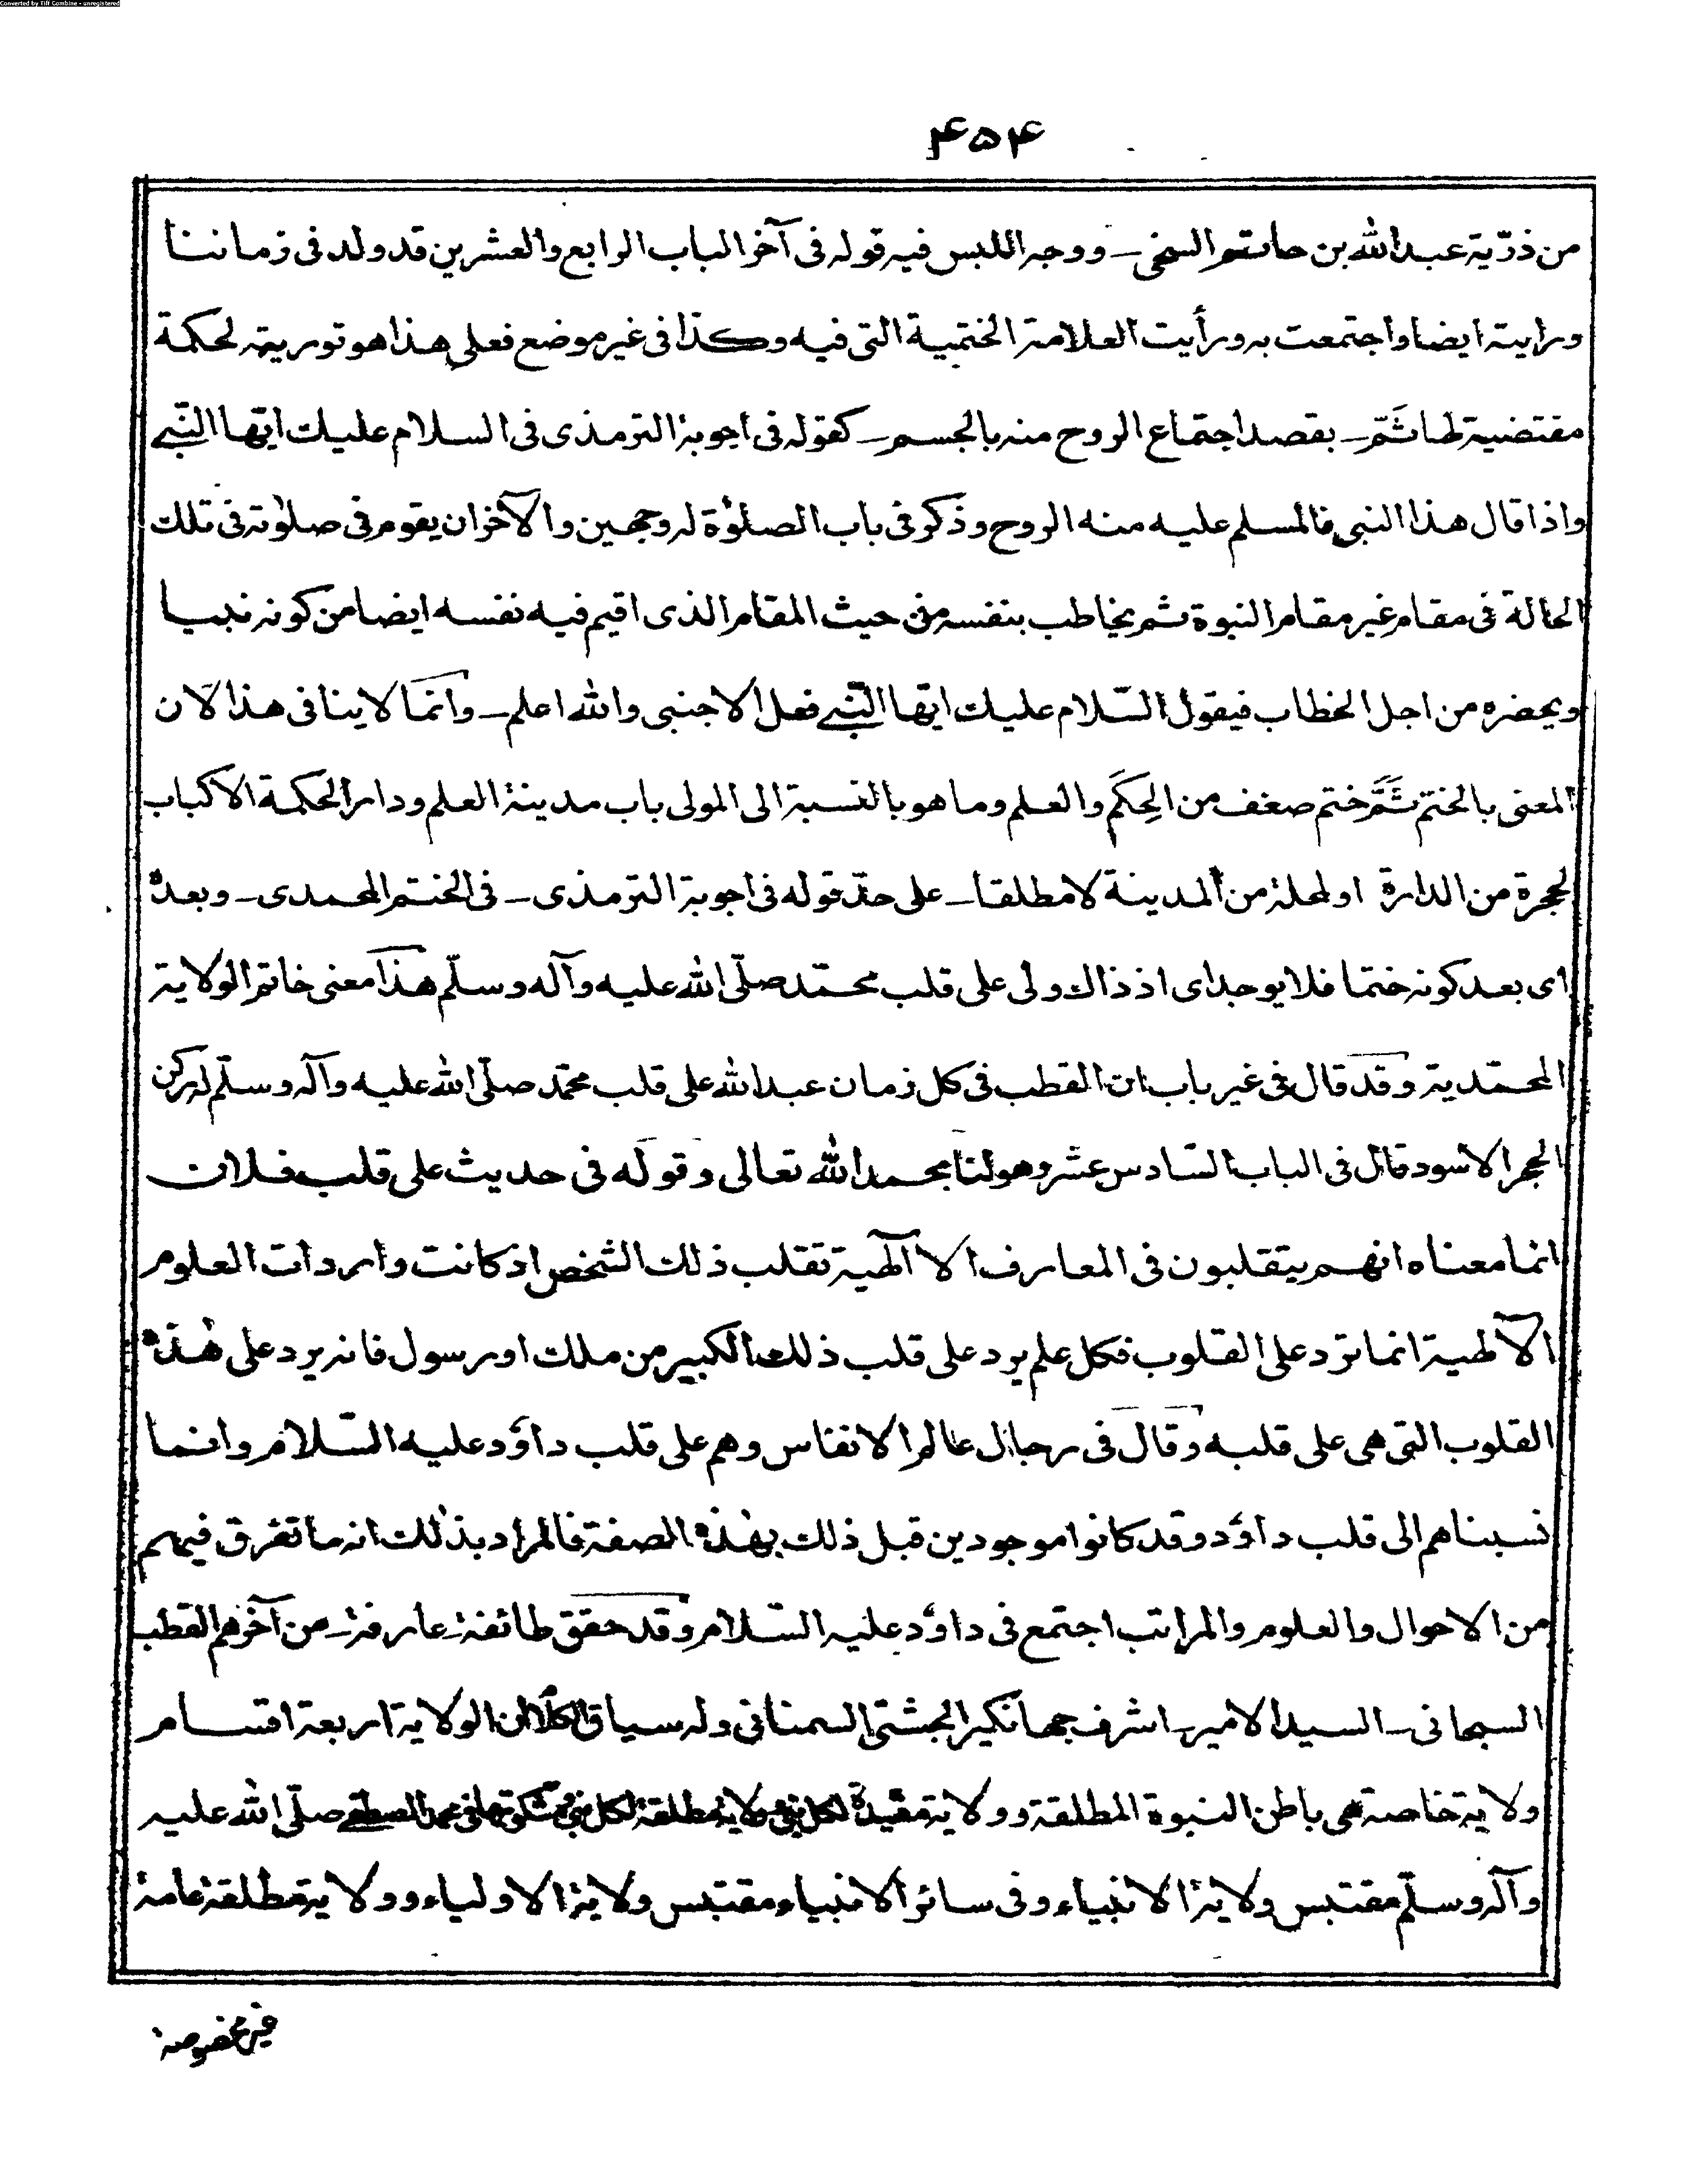 Converted by Tiff Combine - unregistered
۴۵۴
من ذرّية عبدالله بن حاتم السخی ــ ووجه اللبس فيه قوله فی آخر الباب الرابع والعشرين قد ولد فی زماننا
ورايته ايضا واجتمعت به ورأيت العلامة الختمية التی فيه وکذا فی غير موضع فعلی هذا هو تورية لحکمة
مقتضية لها ثَمّ ــ بقصد اجتماع الروح منه بالجسم ــ کقوله فی اجوبة الترمذی فی السلام عليک ايّها النّبی
واذا قال هذا النبی فالمسلم عليه منه الروح وذکر فی باب الصلوٰة له وجهين والآخر ان يقوم فی صلوٰته فی تلک
الحالة فی مقام غير مقام النبوة ثم يخاطب بنفسه من حيث المقام الذی اقيم فيه نفسه ايضا من کونه نبيا
ويحضره من اجل الخطاب فيقول السّلام عليک ايّها النّبی فعل الاجنبی والله اعلم ــ وانّما لا ينافی هذا لان
المعنی بالختم ثَمَّ ختم صغف من الحِکَم والعلم وما هو بالنسبة الی المولی باب مدينة العلم ودار الحکمة الا کباب
لحجرة من الدارة او لمحلة من المدينة لا مطلقا ــ علی حدّ قوله فی اجوبة الترمذی ــ فی الختم المحمدی ــ وبعده
ای بعد کونه ختما فلا يوجد ای اذ ذاک ولی علی قلب محمّد صلّی الله عليه وآله وسلّم هذا معنی خاتم الولاية
المحمّدية وقد قال فی غير باب ان القطب فی کل زمان عبدالله علی قلب محمّد صلّی الله عليه وآله وسلّم له رکن
الحجر الاسود قال فی الباب السّادس عشر وهو لنا بحمد الله تعالی وقوله فی حديث علی قلب فلان
انما معناه انهم يتقلبون فی المعارف الآلٰهية تقلب ذلک الشخص اذ کانت واردات العلوم
الآلٰهية انما ترد علی القلوب فکل علم يرد علی قلب ذلک الکبير من ملک او رسول فانه يرد علی هٰذه
القلوب التی هی علی قلبه وقال فی رجال عالم الانفاس وهم علی قلب داوٗد عليه السّلام وانما
نسبناهم الی قلب داوٗد وقد کانوا موجودين قبل ذلک بهٰذه الصفة فالمراد بذٰلک انه ما تفرق فيهم
من الاحوال والعلوم والمراتب اجتمع فی داوٗد عليه السّلام وقد حقق طائفة عارفة ــ من آخرهم القطب
السبحانی ــ السيد الامير ــ اشرف جهانگير الچشتی السمنانی وله سياق الکلام ان الولاية اربعة اقسام
ولاية خاصة هی باطن النبوة المطلقة وولاية مقيدة لکل نبی وولاية مطلقة لکل نبی صلّی الله عليه
وآله وسلّم مقتبس ولاية الانبياء وفی سائر الانبياء مقتبس ولاية الاولياء وولاية مطلقة عامة
غير مخصوصة